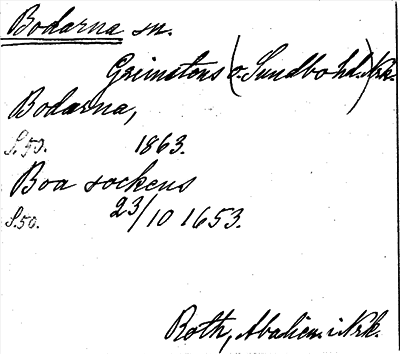 Bodarna sn.
Grimstens (o. Sundbo hd.) Nrk.
Bodarna,
S. 50. 1863.
Boa sockens
S. 50. 23/10 1653.
Roth, i Nrk.